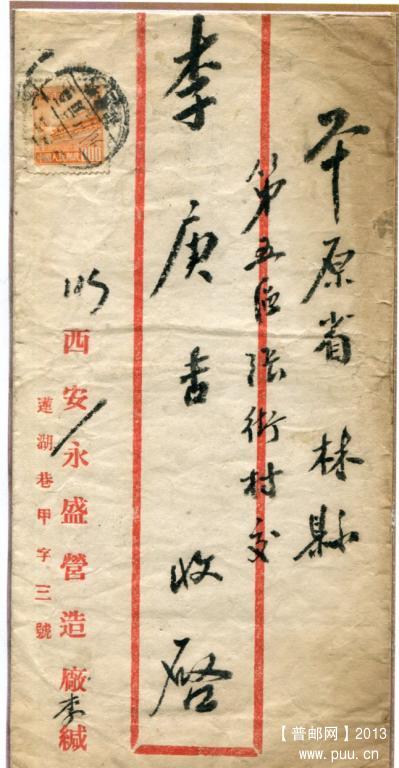 平原省林縣
第五區張街村交
李庚吉收啓
西安永盛營造廠李緘
蓮湖巷甲字三號
中国人民邮政
800
【普邮网】2013
www.puu.cn